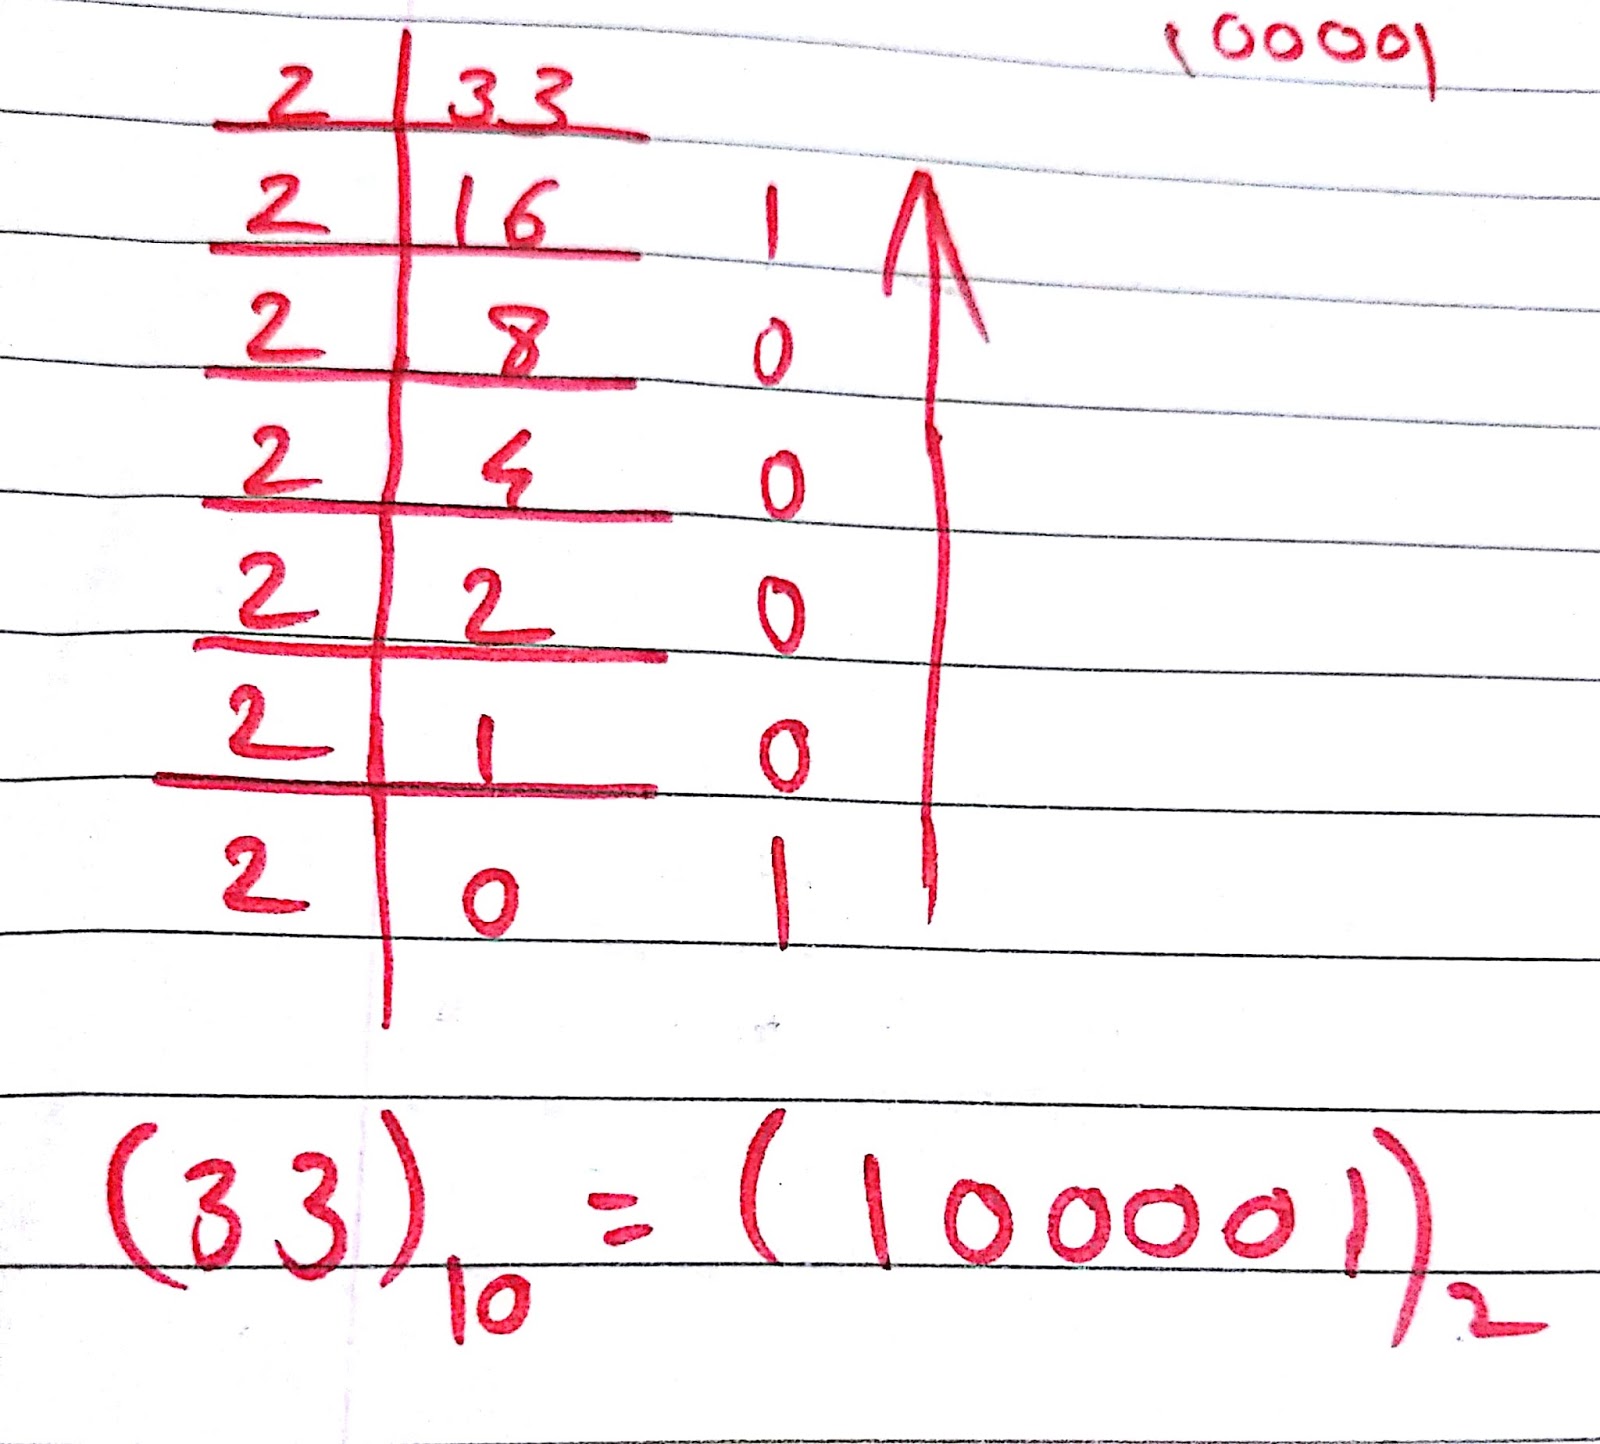 100001
2 33
2 16 1
2 8 0
2 4 0
2 2 0
2 1 0
2 0 1
(33)10 = (100001)2